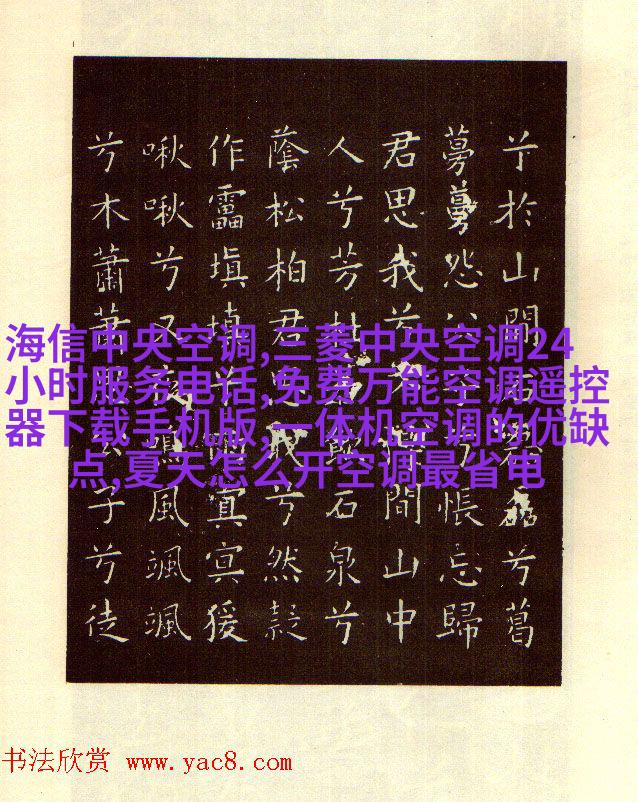 兮於山間石磊磊兮葛
蔓蔓怨公子兮悵忘歸
君思我兮不得間山中
人兮芳杜若飲石泉兮
蔭松柏君思我兮然疑
作靁填填兮雨冥冥猨
啾啾兮又夜鳴風颯颯
兮木蕭蕭思公子兮徒
海信中央空调,三菱中央空调24
小时服务电话,免费万能空调遥控
器下载手机版,一体机空调的优缺
点,夏天怎么开空调最省电
书法欣赏 www.yac8.com